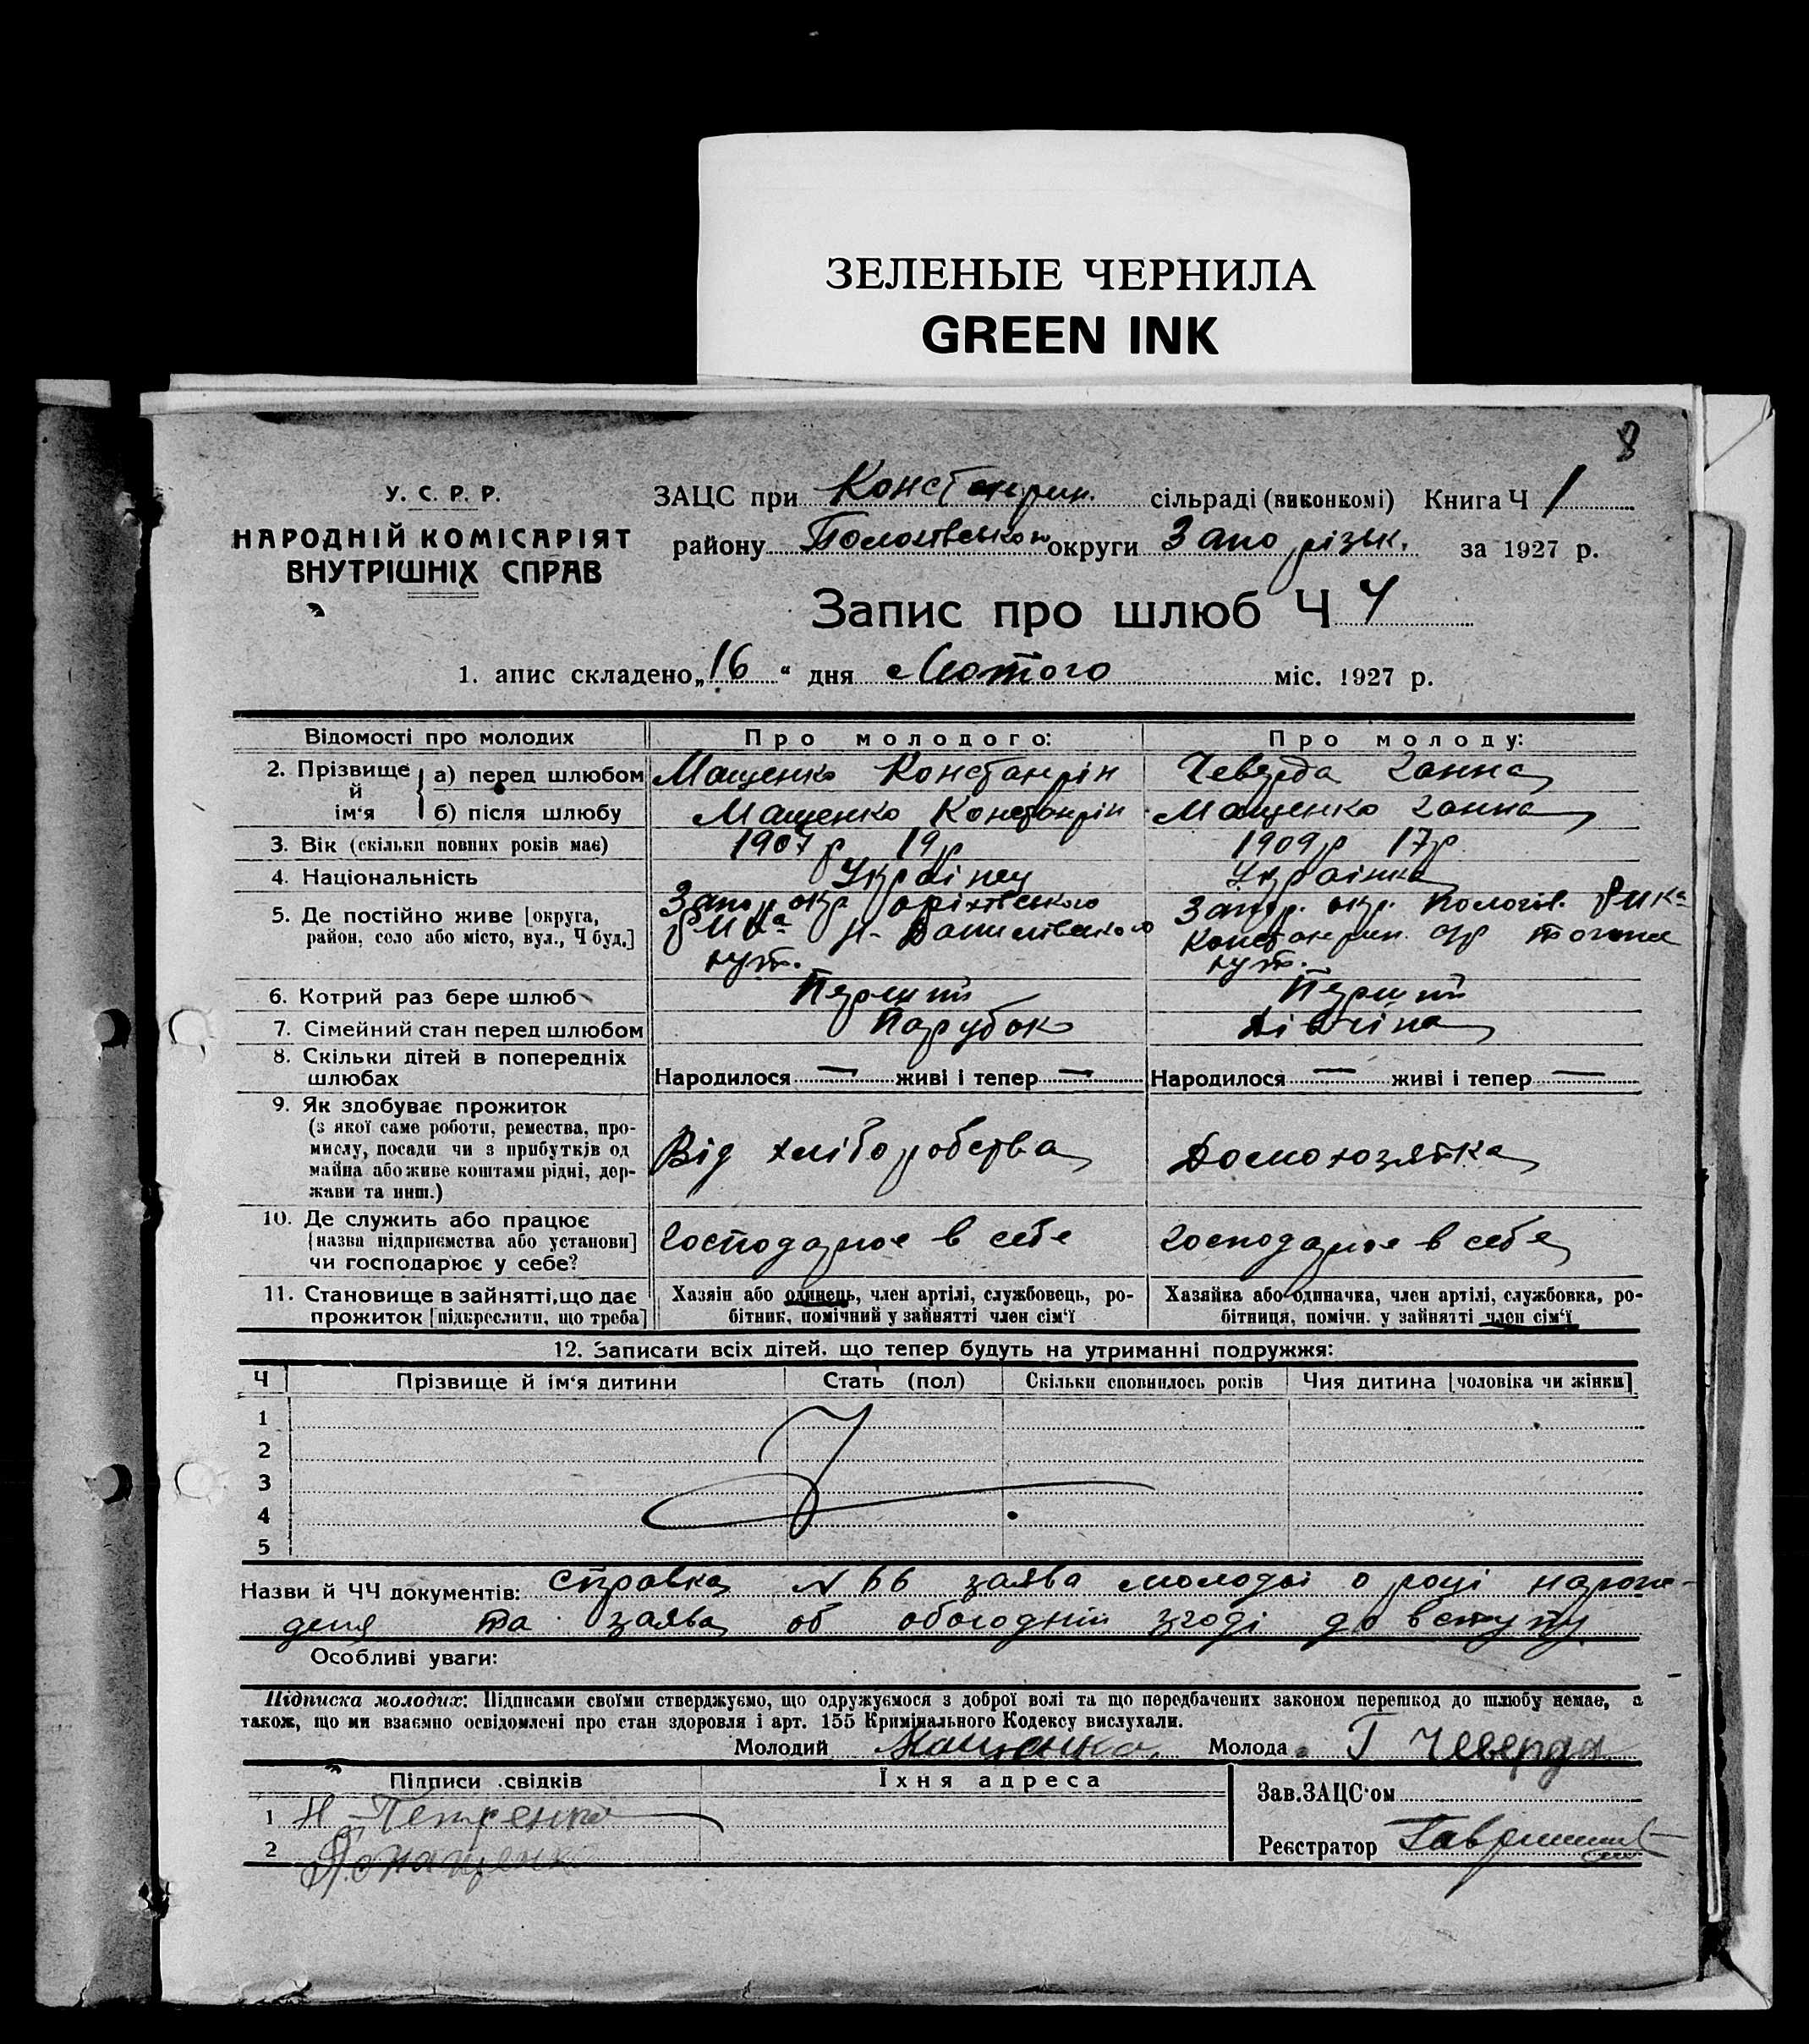 ЗЕЛЕНЫЕ ЧЕРНИЛА
GREEN INK
8
У. С. Р. Р.
НАРОДНІЙ КОМІСАРІЯТ
ВНУТРІШНІХ СПРАВ
ЗАЦС при Констанрин. сільраді (виконкомі) Книга Ч 1
району Пологівського округи Запорізьк. за 1927 р.
Запис про шлюб Ч 4
1. апис складено „16“ дня Лютого міс. 1927 р.
Відомості про молодих Про молодого: Про молоду:
2. Прізвище й ім‘я а) перед шлюбом Мащенко Констанрін Чеверда Ганна
б) після шлюбу Мащенко Констанрін Мащенко Ганна
3. Вік (скільки повних років має) 1907 р 19 р 1909 р 17 р
4. Національність Українец Українка
5. Де постійно живе [округа, район, село або місто, вул., Ч буд.]
Запор окр Оріхівського
Запор. окр. Пологів. р-ка
Констанрин с/р
хут.
хут.
6. Котрий раз бере шлюб Перший Перший
7. Сімейний стан перед шлюбом Парубок Дівчіна
8. Скільки дітей в попередніх шлюбах Народилося — живі і тепер — Народилося — живі і тепер —
9. Як здобуває прожиток
(з якої саме роботи, ремества, про-
мислу, посади чи з прибутків од
майна або живе коштами рідні, дер-
жави та инш.)
Від хліборобства Домохозяйка
10. Де служить або працює
[назва підприємства або установи]
чи господарює у себе?
Господарює в себе Господарює в себе
11. Становище в зайнятті, що дає
прожиток [підкреслити, що треба]
Хазяін або одинець, член артілі, службовець, ро-
бітник, помічний у зайнятті член сім‘ї
Хазяйка або одиначка, член артілі, службовка, ро-
бітниця, помічн. у зайнятті член сім‘ї
12. Записати всіх дітей, що тепер будуть на утриманні подружжя:
Ч Прізвище й ім‘я дитини Стать (пол) Скільки сповнилось років Чия дитина [чоловіка чи жінки]
1
2
3
4
5
Назви й ЧЧ документів: справка N 66 заява молодоі о році нарож-
деня та заява об обоюдній згоді до вступу
Особливі уваги:
Підписка молодих: Підписами своїми стверджуємо, що одружуємося з доброї волі та що передбачених законом перешкод до шлюбу немає, а
також, що ми взаємно освідомлені про стан здоровля і арт. 155 Кримінального Кодексу вислухали.
Молодий Мащенко Молода Г Чеверда
Підписи свідків Їхня адреса Зав.ЗАЦС‘ом
1 Н Петренко
2
Реєстратор